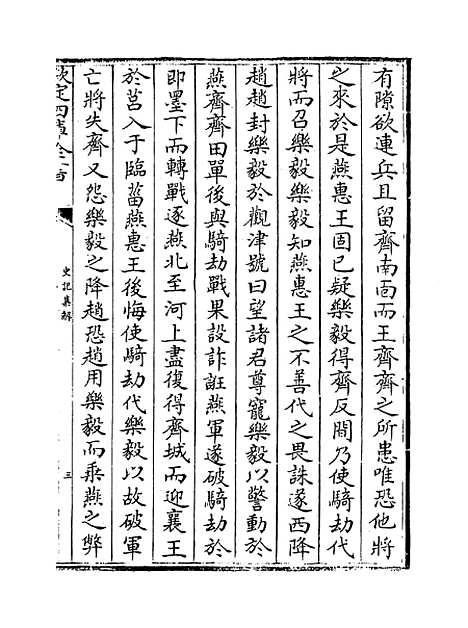 有隙欲連兵且留齊南面而王齊齊之所患唯恐他將
之來於是燕惠王固已疑樂毅得齊反間乃使騎劫代
將而召樂毅樂毅知燕惠王之不善代之畏誅遂西降
趙趙封樂毅於觀津號曰望諸君尊寵樂毅以警動於
燕齊齊田單後與騎劫戰果設詐誑燕軍遂破騎劫於
即墨下而轉戰逐燕北至河上盡復得齊城而迎襄王
於莒入于臨菑燕惠王後悔使騎劫代樂毅以故破軍
亡將失齊又怨樂毅之降趙恐趙用樂毅而乘燕之弊
欽定四庫全書
史記集解
三